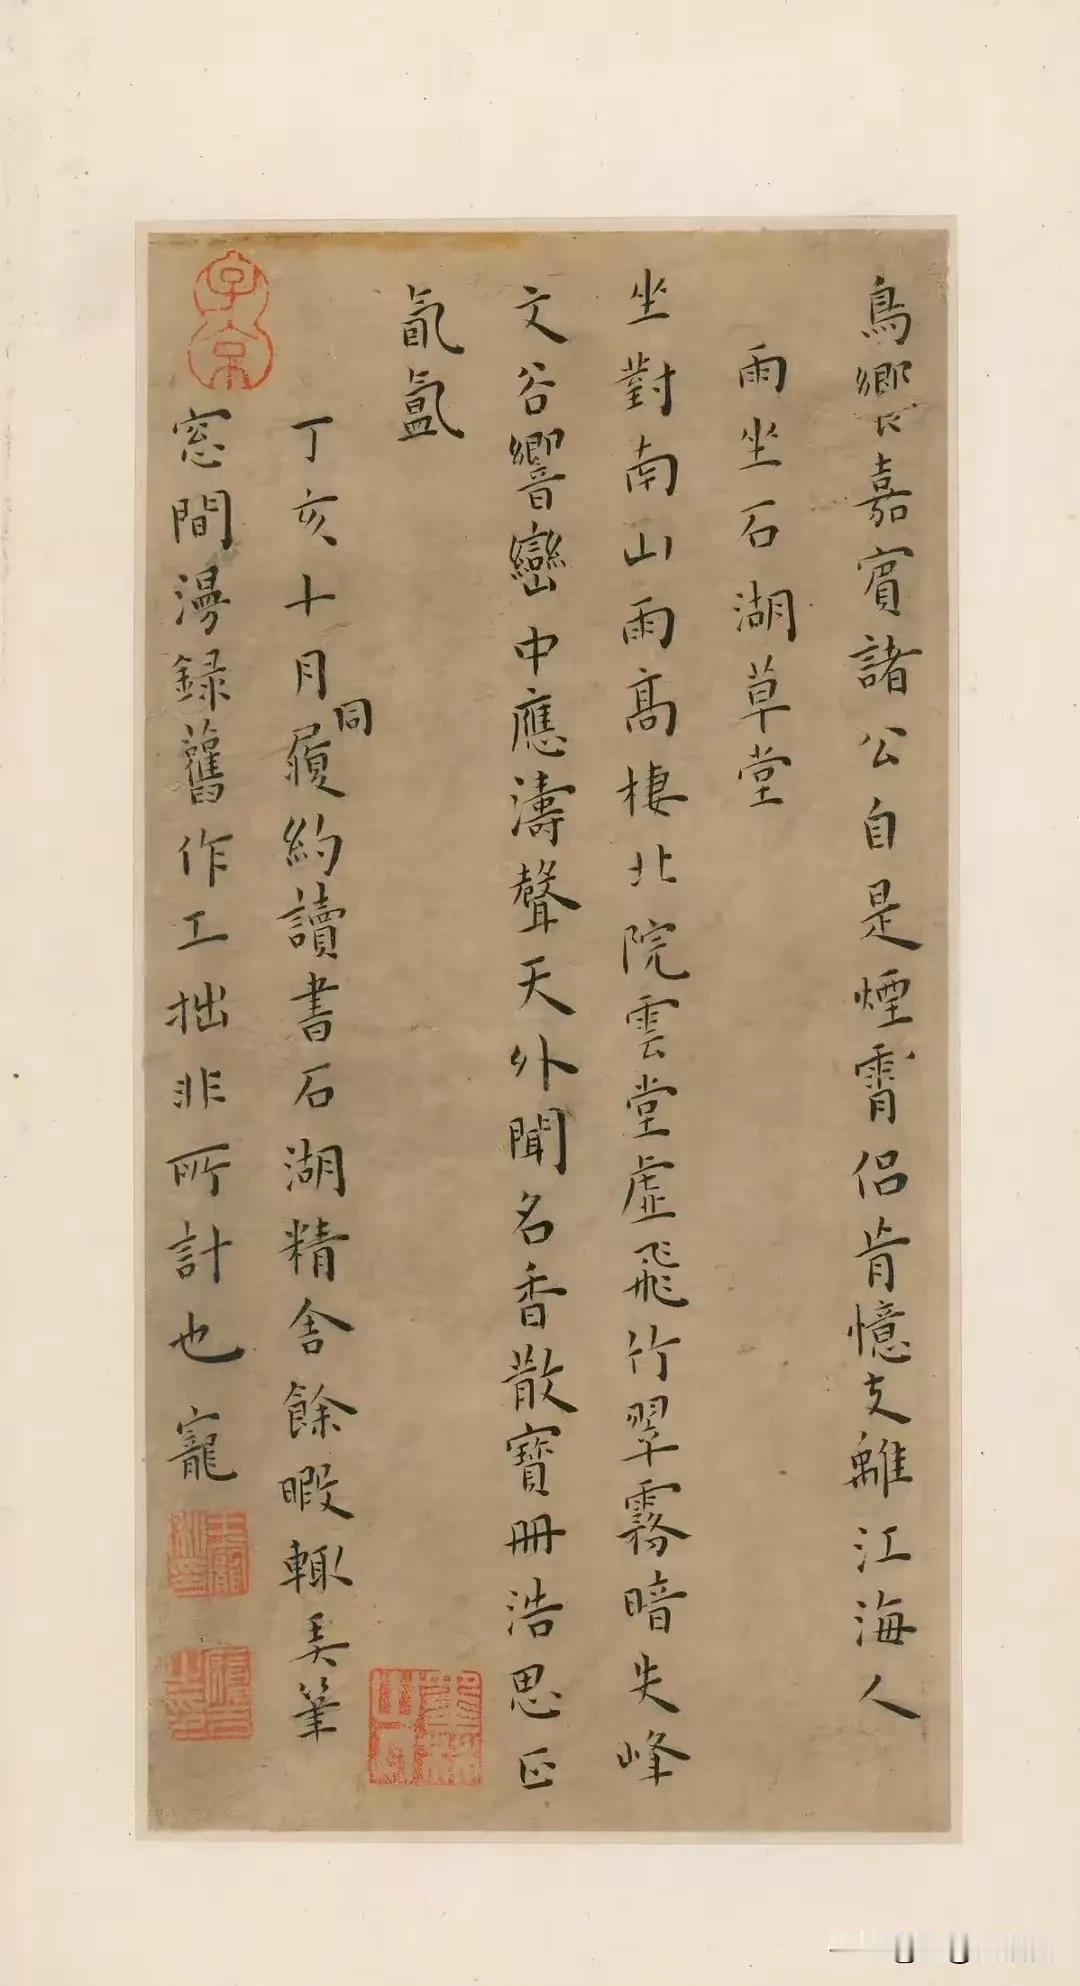 鳥嚮嘉賓諸公自是煙霄侶肯憶支離江海人
雨坐石湖草堂
坐對南山雨高棲北院雲堂虛飛竹翠霧暗失峰
文谷響巒中應濤聲天外聞名香散寶冊浩思正
氤氳
丁亥十月同履約讀書石湖精舍餘暇輒弄筆
窓間漫錄舊作工拙非所計也寵
子京